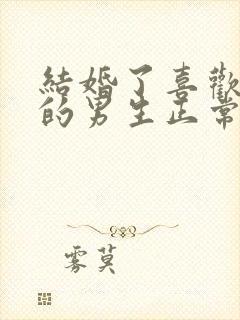 結婚了喜歡
的男生正常
雾莫